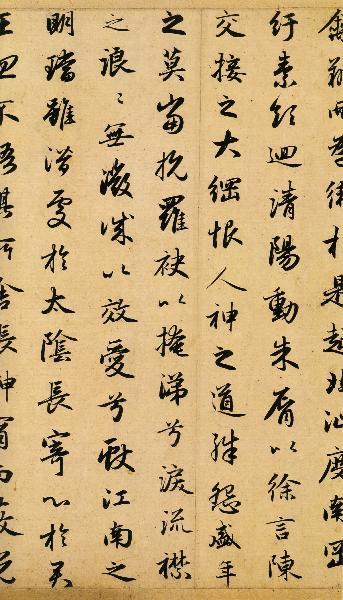 禽翔而為衛於是越北沚度南岡
紆素領迴清陽動朱脣以徐言陳
交接之大綱恨人神之道殊怨盛年
之莫當抗羅袂以掩涕兮淚流襟
之浪〻無微誠以效愛兮獻江南之
明璫雖潛處於太陰長寄心於君
王忽不悟其所舍悵神宵而蔽光